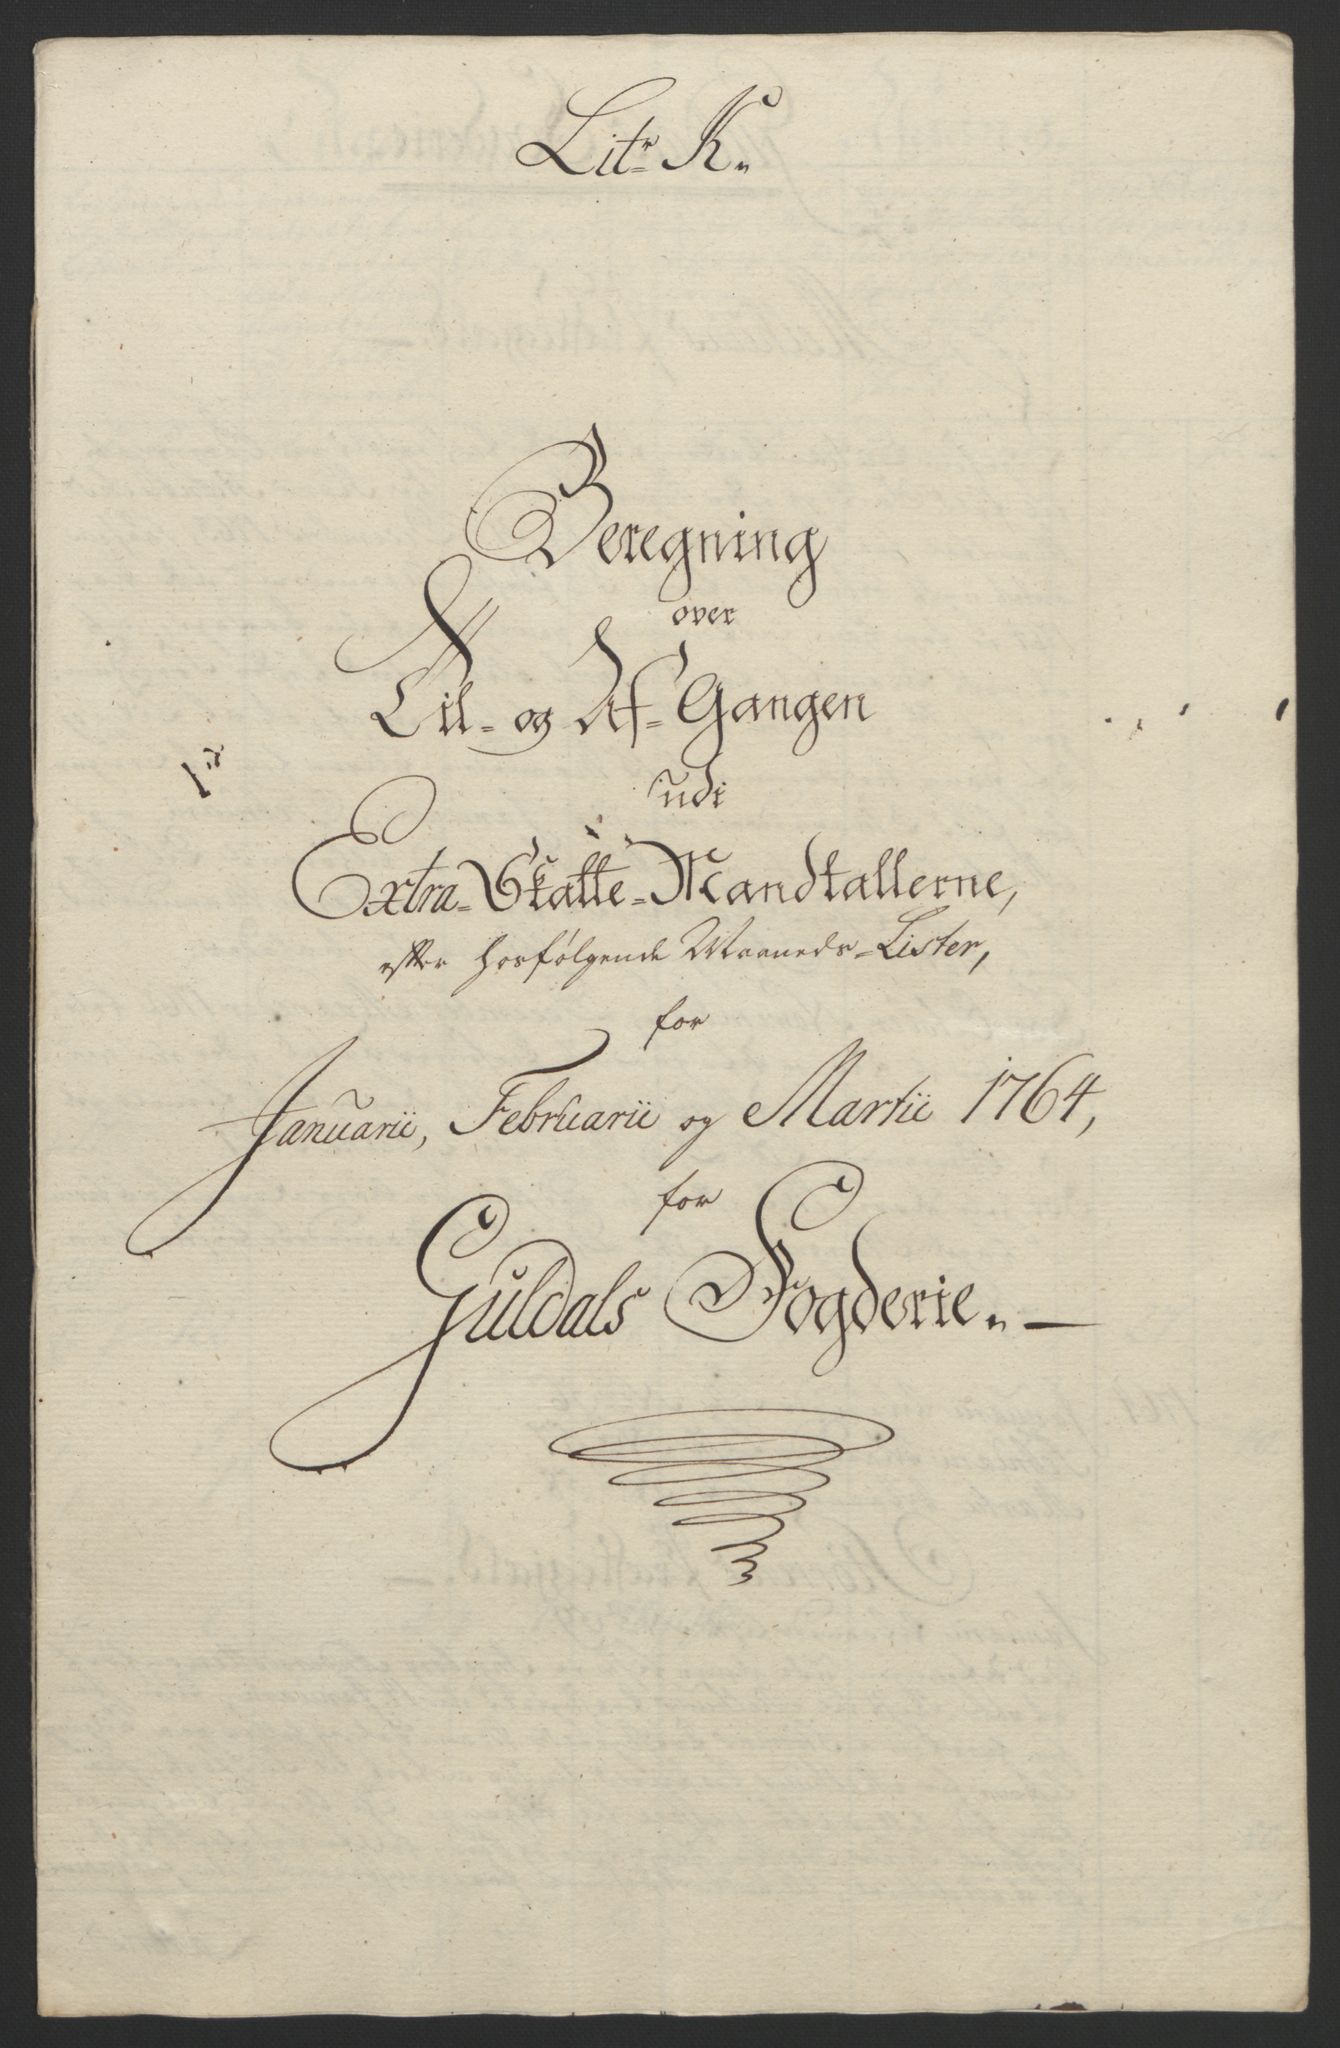 Litr K.
Beregning
over
Til- og Af-Gangen
udi
Extra-Skatte-Mandtallerne,
efter hosfølgende Maaneds-Lister,
for
Januarii, Februarii og Martii 1764,
for
Guldals Fogderie.